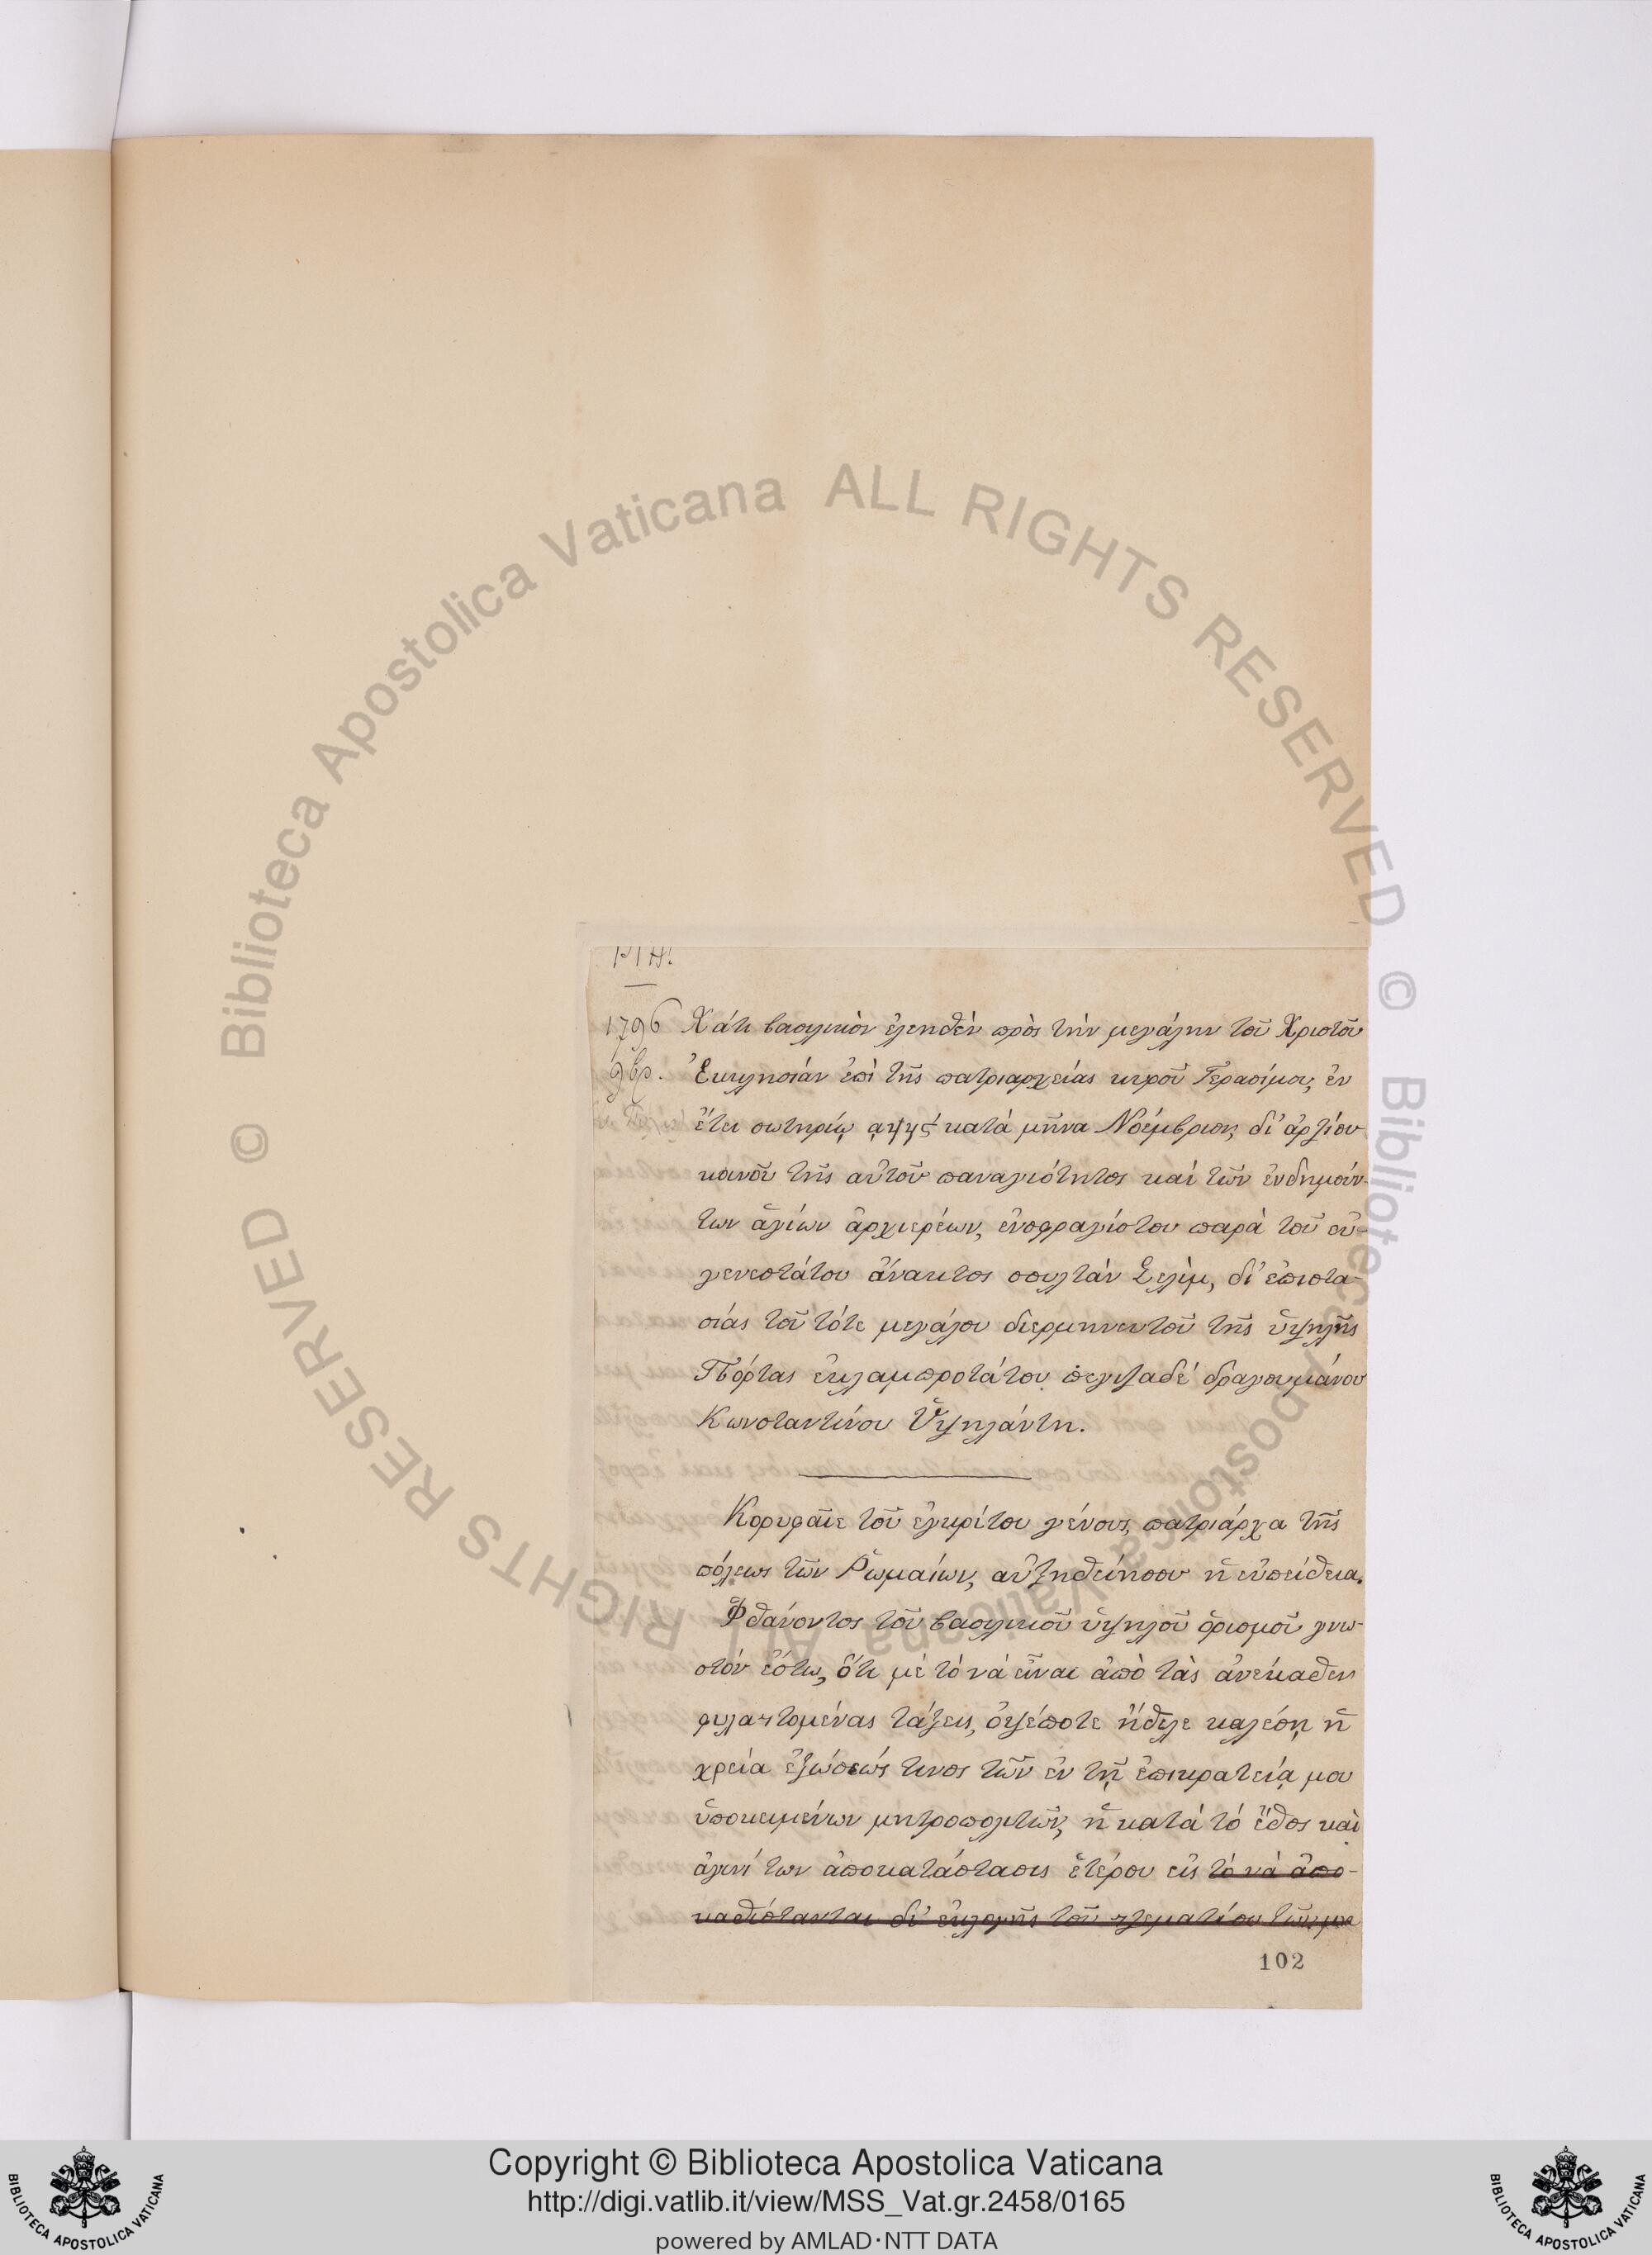 ΡΙΗ.
1796 Χάτι βασιλικὸν ἐλεηθὲν πρὸς τὴν μεγάλην τοῦ Χριστοῦ
9βρ. Ἐκκλησίαν ἐπὶ τῆς πατριαρχείας κυροῦ Γερασίμου, ἐν
ἔτει σωτηρίῳ αψϟϛ κατὰ μῆνα Νοέμβριον, δι' ἀρζίου
κοινοῦ τῆς αὐτοῦ παναγιότητος καὶ τῶν ἐνδημούν-
των ἁγίων ἀρχιερέων, ἐνσφραγίστου παρὰ τοῦ εὐ-
γενεστάτου ἄνακτος σουλτὰν Σελὶμ, δι' ἐπιστα-
σίας τοῦ τότε μεγάλου διερμηνευτοῦ τῆς ὑψηλῆς
Πόρτας ἐκλαμπροτάτου πεϊζαδέ δραγουμάνου
Κωνσταντίνου Ὑψηλάντη.
Κορυφαῖε τοῦ ἐγκρίτου γένους, πατριάρχα τῆς
πόλεως τῶν Ῥωμαίων, αὐξηθείησου ἡ εὐπείθεια.
Φθάνοντος τοῦ βασιλικοῦ ὑψηλοῦ ὁρισμοῦ γνω-
στὸν ἔστω, ὅτι μὲ τὸ νὰ εἶναι ἀπὸ τὰς ἀνέκαθεν
φυλαττομένας τάξεις, ὁψέποτε ἤθελε καλέσῃ ἡ
χρεία ἐξώσεώς τινος τῶν ἐν τῇ ἐπικρατείᾳ μου
ὑποκειμένων μητροπολιτῶν, ἢ κατὰ τὸ ἔθος καὶ
ἀντί των ἀποκατάστασις ἑτέρου εἰς τὸ νὰ ἀπο-
καθίστανται δι' ἐκλογῆς τοῦ
102
Copyright © Biblioteca Apostolica Vaticana
http://digi.vatlib.it/view/MSS_Vat.gr.2458/0165
powered by AMLAD·NTT DATA
BIBLIOTECA APOSTOLICA VATICANA
BIBLIOTECA APOSTOLICA VATICANA
© Biblioteca Apostolica Vaticana ALL RIGHTS RESERVED © Biblioteca Apostolica Vaticana ALL RIGHTS RESERVED